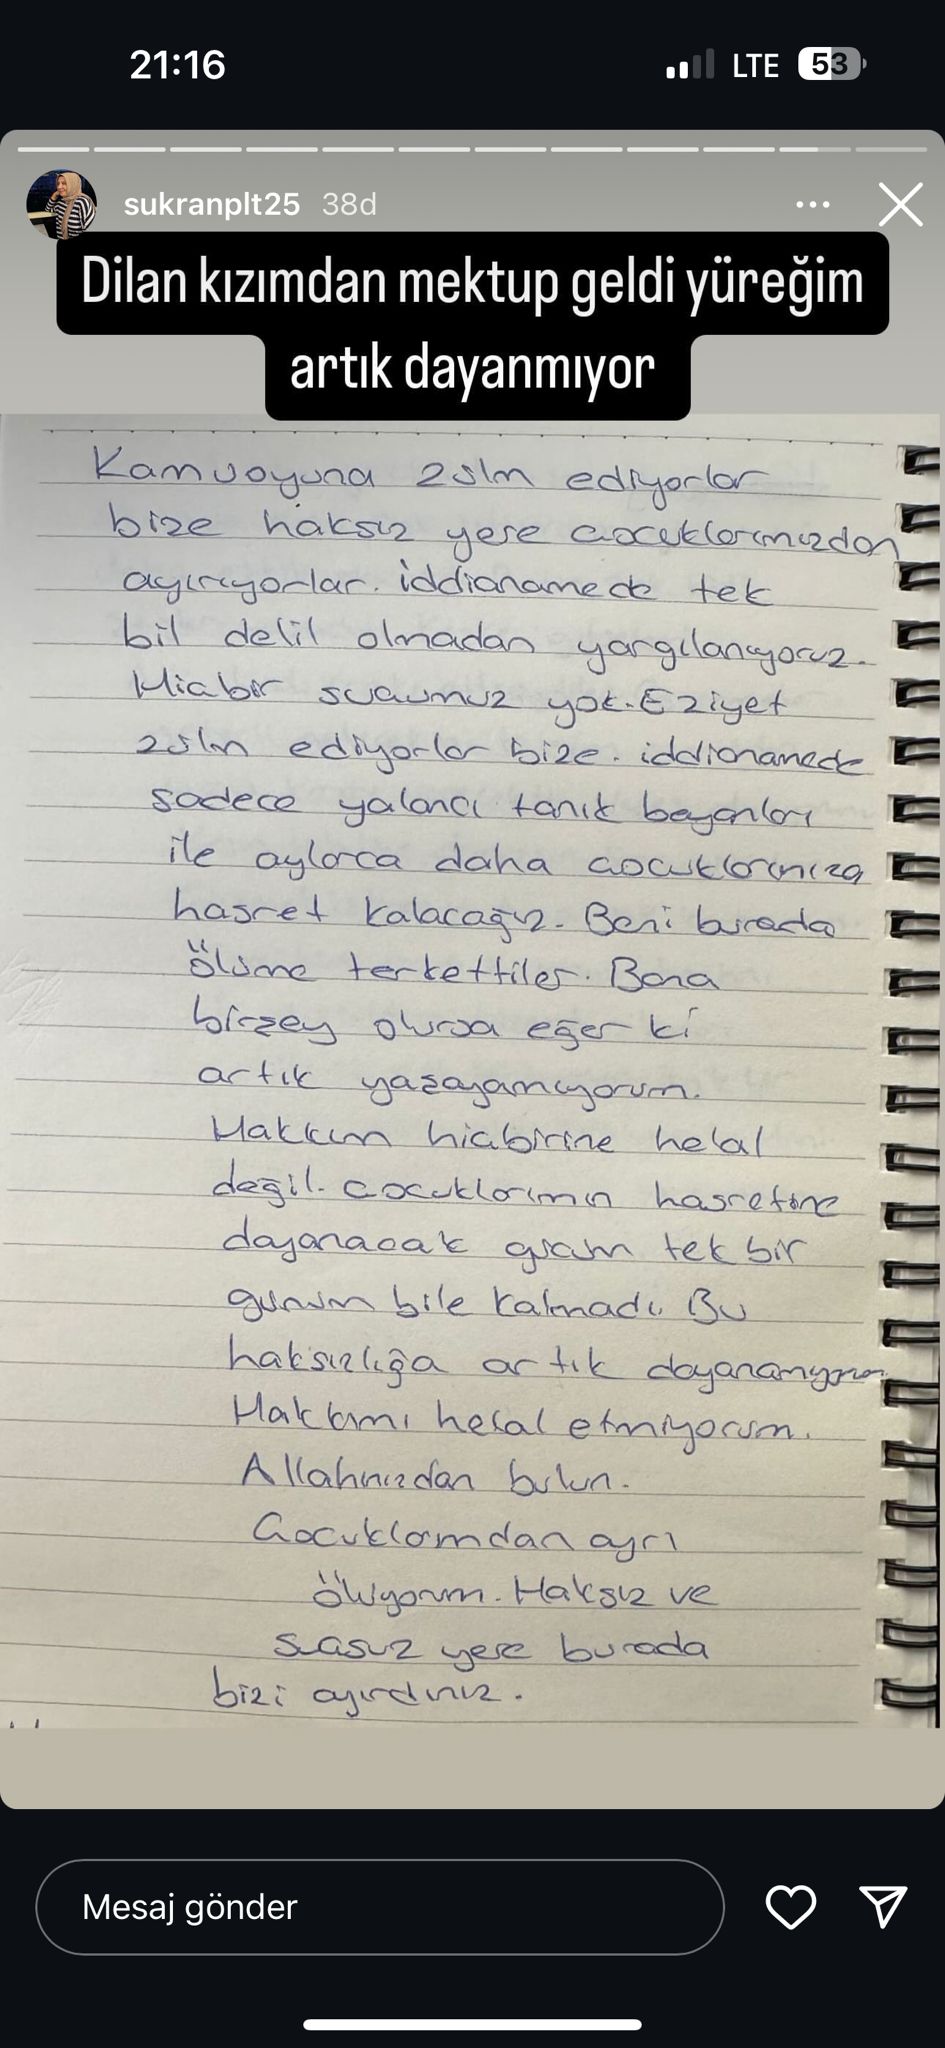 21:16
LTE 53
sukranplt25 38d
Dilan kızımdan mektup geldi yüreğim
artık dayanmıyor
Kamuoyuna zulm ediyorlar
bize haksız yere çocuklarımızdan
ayırıyorlar. iddianamede tek
bil delil olmadan yargılanıyoruz.
Hiçbir suçumuz yok. Eziyet
zulm ediyorlar bize. iddianamede
sadece yalancı tanık beyanları
ile aylarca daha çocuklarımıza
hasret kalacağız. Beni burada
ölüme terkettiler. Bana
birşey olursa eğer ki
artık yaşayamıyorum.
Hakkım hiçbirine helal
değil. çocuklarımın hasretine
dayanacak gücüm tek bir
günüm bile kalmadı. Bu
haksızlığa artık dayanamıyorum
Hakkımı helal etmiyorum.
Allahınızdan bulun.
Çocuklarımdan ayrı
ölüyorum. Haksız ve
suçsuz yere burada
bizi ayırdınız.
Mesaj gönder